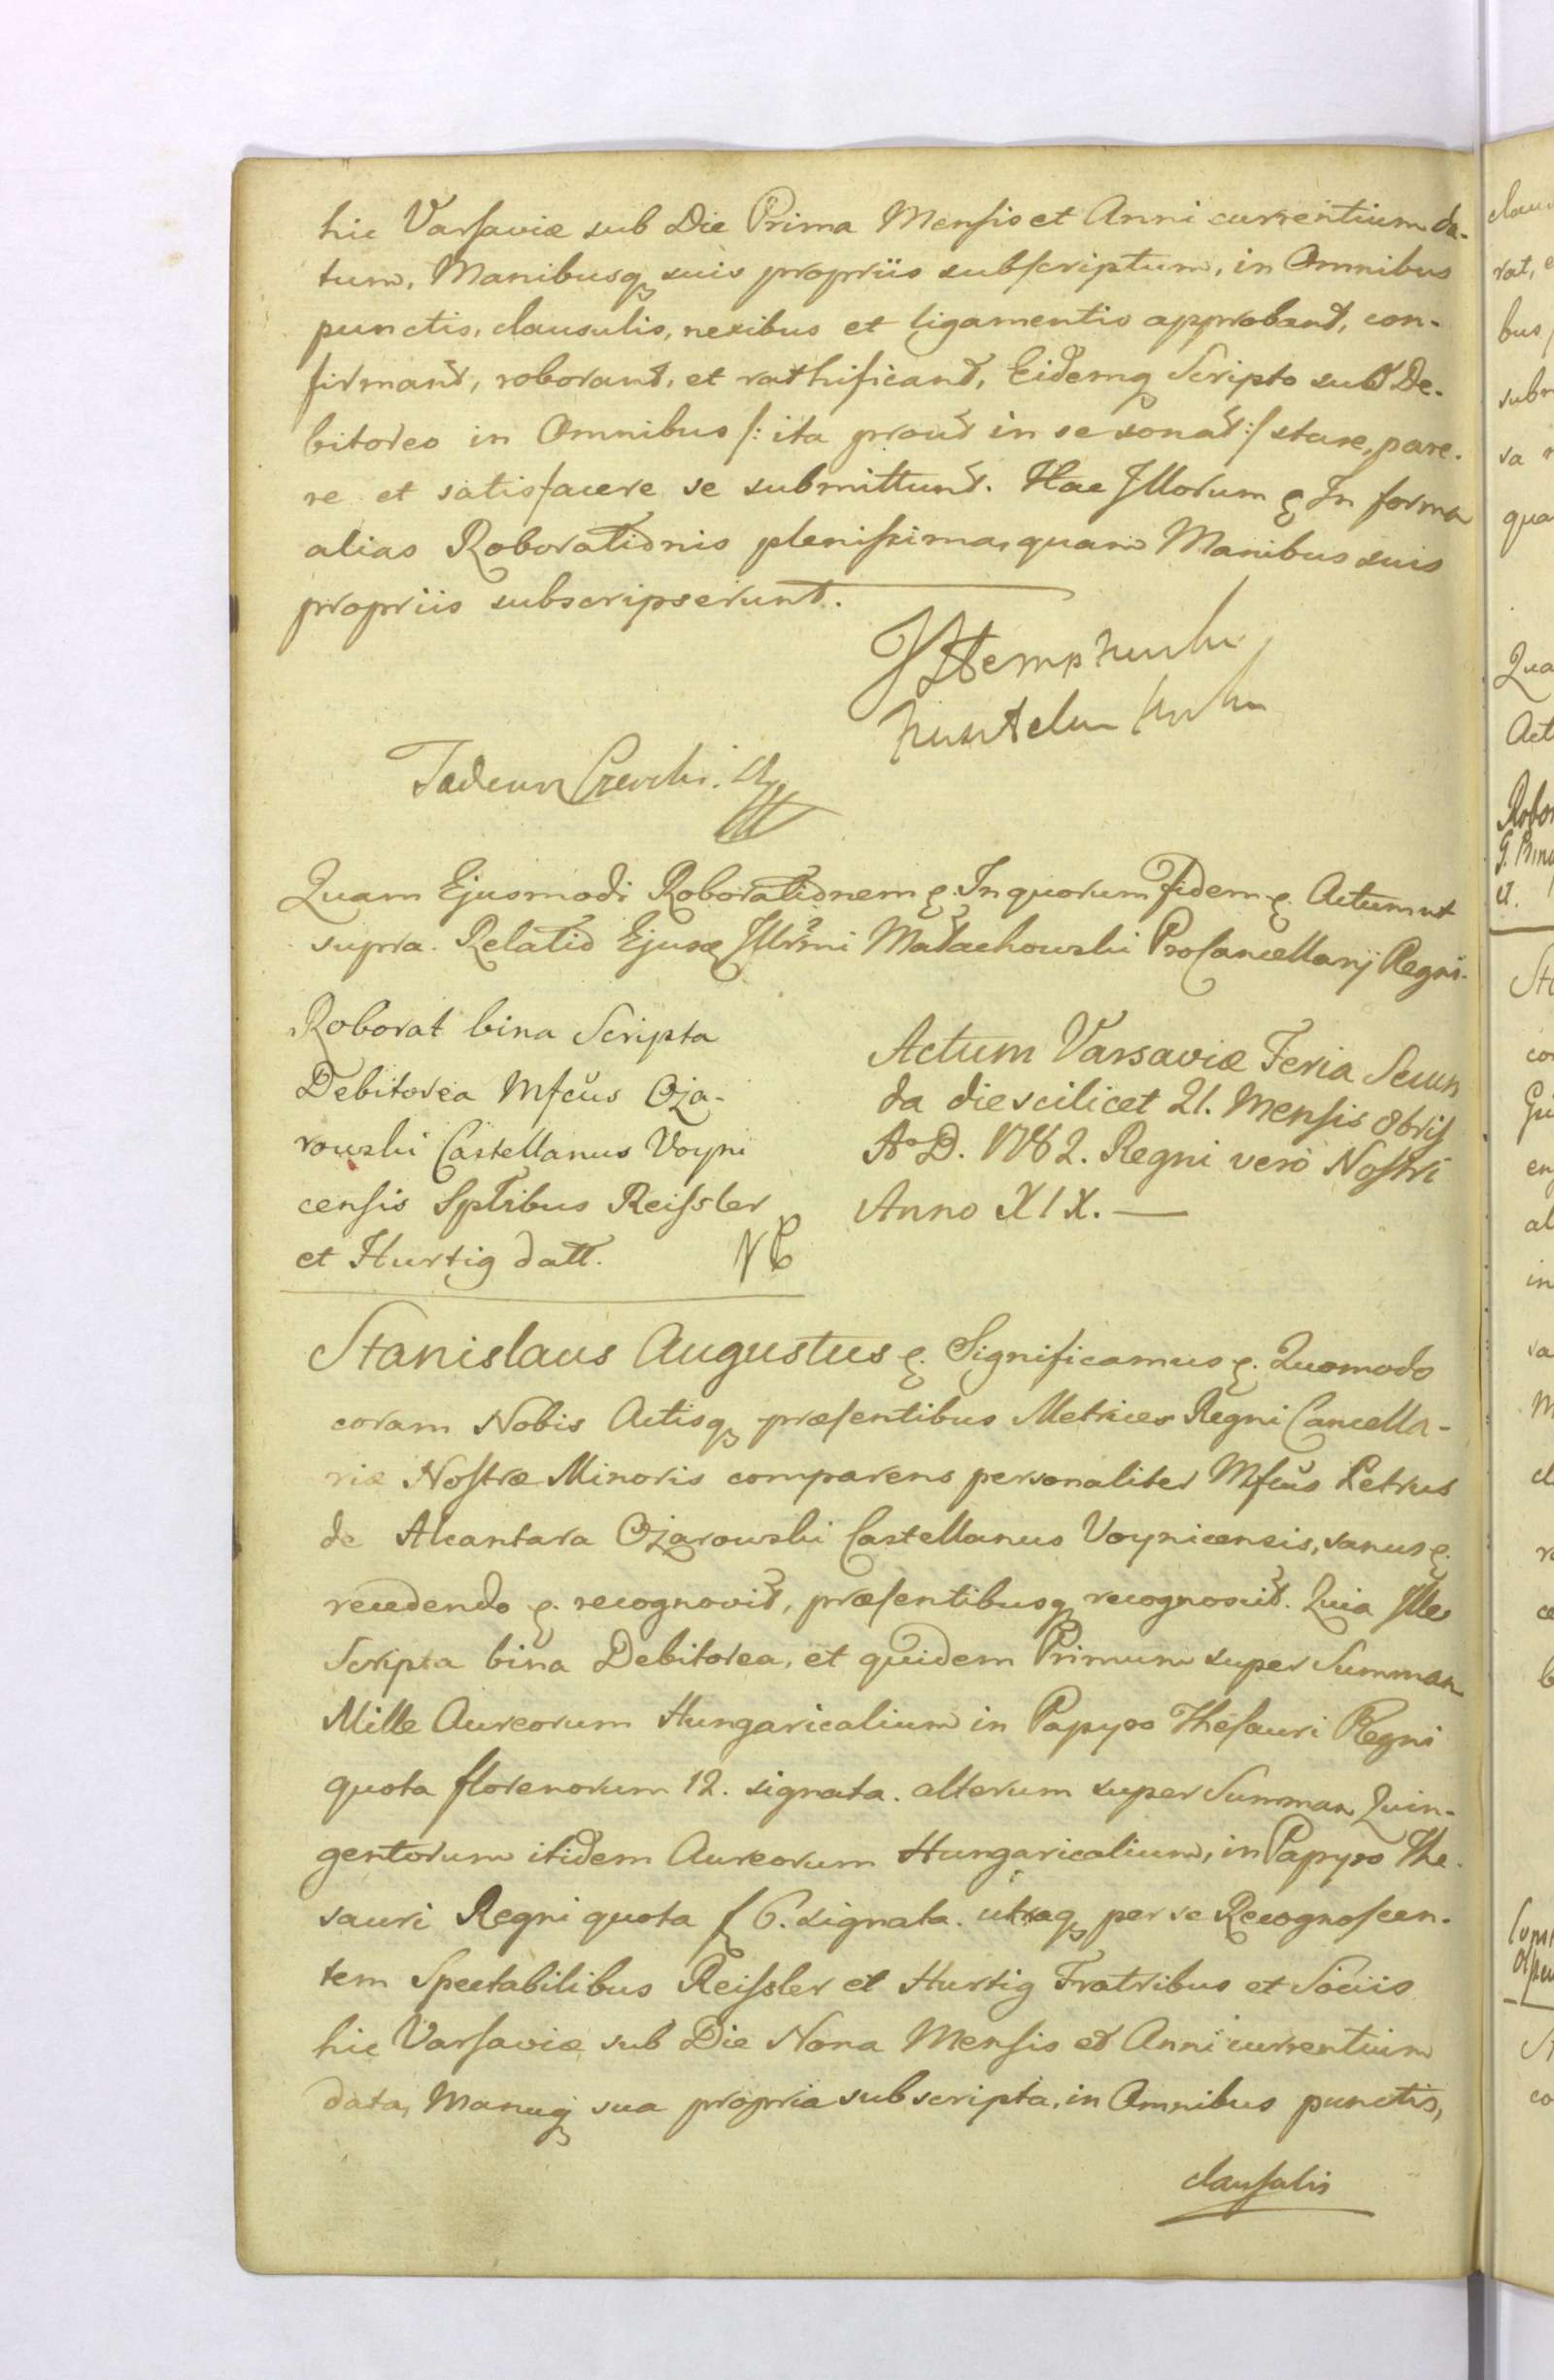 hic Varsaviæ sub Die Prima Mensis et Anni currentium da-
tum, Manibusq suis propriis subscriptum, in Omnibus
punctis, clausulis, nexibus et ligamentis approbant, con-
firmant, roborant, et rathificant, Eidemq Scripto sub De-
bitoreo in Omnibus /: ita prout in se sonat :/ stare, pare-
re et satisfacere se submittunt. Hac Illorum In forma
alias Roborationis plenissima, quam Manibus suis
propriis subscripserunt.
Tadeusz Czacki
Quam Ejusmodi Roborationem In quorum fidem Actum ut
supra. Relatio Ejusq Illrmi Małachowski ProCancellarij Regni.
Roborat bina Scripta
Debitorea Mfcus Oża-
rowski Castellanus Voyni
censis Sptibus Reissler
et Hurtig datt.
Actum Varsaviæ Feria Secun
da die scilicet 21. Mensis 8bris
Ao D. 1782. Regni vero Nostri
Anno XIX.
Stanislaus Augustus Significamus Quomodo
coram Nobis Actisq præsentibus Metrices Regni Cancella-
riæ Nostræ Minoris comparens personaliter Mfcus Petrus
de Alcantara Ożarowski Castellanus Voynicensis, sanus
recedendo recognovit, præsentibusq recognoscit. Quia Ille
Scripta bina Debitorea, et quidem Primum super Summam
Mille Aureorum Hungaricalium in Papyro Thesauri Regni
quota florenorum 12. signata. alterum super Summam Quin-
gentorum itidem Aureorum Hungaricalium, in Papyro The-
sauri Regni quota f 6. signata. utraq per se Recognoscen-
tem Spectabilibus Reissler et Hurtig Fratribus et Sociis
hic Varsaviæ sub Die Nona Mensis et Anni currentium
data, Manuq sua propria subscripta, in Omnibus punctis,
clausulis